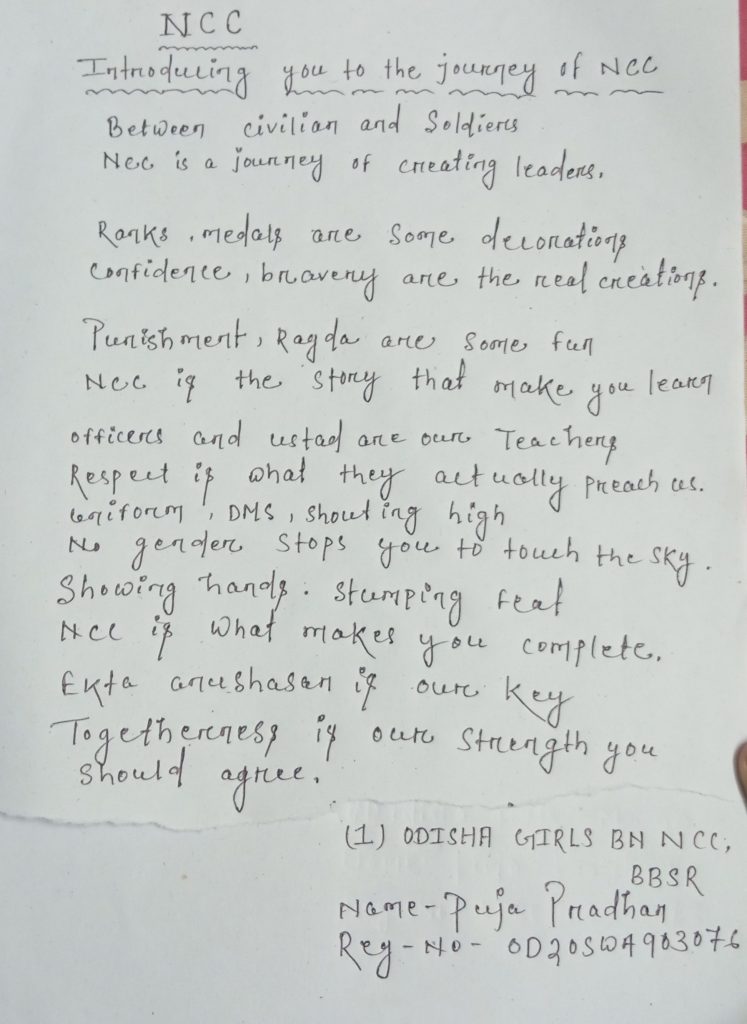 NCC
Introducing you to the journey of NCC
Between civilian and Soldiers
Ncc is a journey of creating leaders.
Ranks, medals are some decorations
Confidence, bravery are the real creations.
Punishment, Ragda are some fun
NCC is the story that make you learn
officers and ustad are our Teachers
Respect is what they actually preach us.
Uniform, DMS, shouting high
No gender stops you to touch the sky.
Showing hands. stumping feat
NCC is what makes you complete.
Ekta anushasan is our key
Togetherness is our strength you
should agree.
(1) ODISHA GIRLS BN NCC,
BBSR
Name-Puja Pradhan
Reg-No- OD20SWA903076